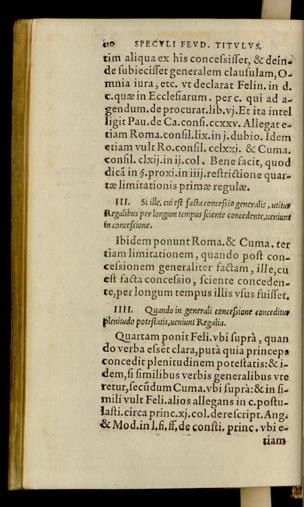 110 SPECVLI FEVD. TITVLVS.
tim aliqua ex his concessisset, & dein-
de subiecisset generalem clausulam, O-
mnia iura, etc. vt declarat Felin. in d.
c. quæ in Ecclesiarum. per c. qui ad a-
gendum. de procurat. lib. vj. Et ita intel
ligit Pau. de Ca. consi. ccxxv. Allegat e-
tiam Roma. consil. lix. in j. dubio. Idem
etiam vult Ro. consil. cclxxj. & Cuma.
consil. clxij. in ij. col. Bene facit, quod
dicā in §. proxi. in iiij. restrictione quar-
tæ limitationis primæ regulæ.
III. Si ille, cui est facta concessio generalis, utitur
Regalibus per longum tempus sciente concedente, ueniunt
in concessione.
Ibidem ponunt Roma. & Cuma. ter
tiam limitationem, quando post con-
cessionem generaliter factam, ille, cu
est facta concessio, sciente conceden-
te, per longum tempus illis vsus fuisset.
IIII. Quando in generali concessione conceditur
pleniudo potestatis, ueniunt Regalia.
Quartam ponit Feli. vbi suprà, quan
do verba essēt clara, putà quia princeps
concedit plenitudinem potestatis: & i-
dem, si similibus verbis generalibus vte
retur, secūdum Cuma. vbi suprà: & in si-
mili vult Feli. alios allegans in c. postu-
lasti. circa princ. xj. col. de rescript. Ang.
& Mod. in l. fi. ff. de consti. princ. vbi e-
tiam